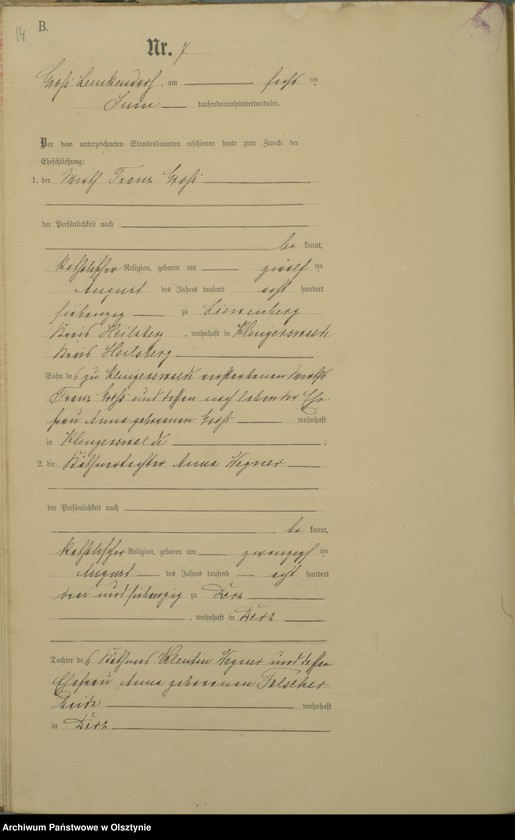 14
B.
Nr. 7
Groß Lemkendorf, am sechs ten
Juni tausendneunhundertundvier.
Vor dem unterzeichneten Standesbeamten erschienen heute zum Zwecke der
Eheschließung:
1. der Wirth Franz Groß
der Persönlichkeit nach
be kannt,
katholischer Religion, geboren am zwölf ten
August des Jahres tausend acht hundert
siebenzig zu
Kreis Heilsberg, wohnhaft in Klingerswalde
Kreis Heilsberg
Sohn des zu Klingerswalde verstorbenen Wirths
Franz Groß und dessen noch lebender Ehe-
frau Anna geborenen Groß wohnhaft
in Klingerswalde;
2. die Käthnertochter Anna Wegner
der Persönlichkeit nach
be kannt,
katholischer Religion, geboren am zwanzigs ten
August des Jahres tausend acht hundert
drei und siebenzig zu Derz
, wohnhaft in Derz
Tochter des Käthners Valentin Wegner und dessen
Ehefrau Anna geborenen
beide wohnhaft
in Derz
Archiwum Państwowe w Olsztynie